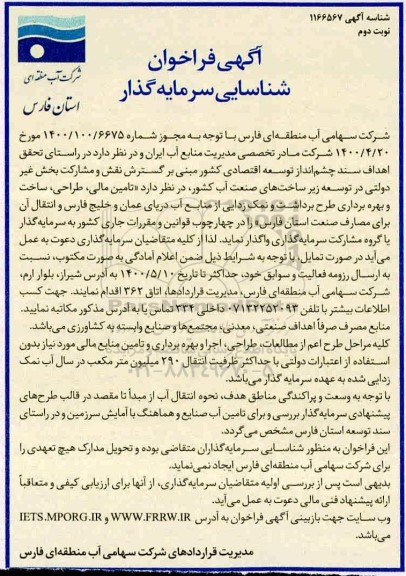 شناسه آگهی ۱۱۶۶۵۶۷
نوبت دوم
شرکت آب منطقه ای
استان فارس
آگهی فراخوان
شناسایی سرمایه گذار
شرکت سهامی آب منطقه‌ای فارس با توجه به مجوز شماره ۱۴۰۰/۱۰۰/۶۶۷۵ مورخ
۱۴۰۰/۴/۲۰ شرکت مادر تخصصی مدیریت منابع آب ایران و در نظر دارد در راستای تحقق
اهداف سند چشم‌انداز توسعه اقتصادی کشور مبنی بر گسترش نقش و مشارکت بخش غیر
دولتی در توسعه زیر ساخت‌های صنعت آب کشور، در نظر دارد «تامین مالی، طراحی، ساخت
و بهره برداری طرح برداشت و نمک‌زدایی از منابع آب دریای عمان و خلیج فارس و انتقال آن
برای مصارف صنعت استان فارس» را در چهارچوب قوانین و مقررات جاری کشور به سرمایه‌گذار
یا گروه مشارکت سرمایه‌گذاری واگذار نماید. لذا از کلیه متقاضیان سرمایه‌گذاری دعوت به عمل
می‌آید در صورت تمایل، با توجه به شرایط ذیل ضمن اعلام آمادگی به صورت مکتوب، نسبت
به ارسال رزومه فعالیت و سوابق خود، حداکثر تا تاریخ ۱۴۰۰/۵/۱۰ به آدرس شیراز، بلوار ارم،
شرکت سهامی آب منطقه‌ای فارس، مدیریت قراردادها، اتاق ۳۶۲ اقدام نمایند. جهت کسب
اطلاعات بیشتر با تلفن ۰۷۱۳۲۲۵۲۰۹۳ داخلی ۳۳۴ تماس یا به آدرس مذکور مکاتبه نمایید.
منابع مصرف صرفاً اهداف صنعتی، معدنی، مجتمع‌ها و صنایع وابسته به کشاورزی می‌باشد.
کلیه مراحل طرح اعم از مطالعات، طراحی، اجرا و بهره برداری و تامین منابع مالی مورد نیاز بدون
استفاده از اعتبارات دولتی با حداکثر ظرفیت انتقال ۲۹۰ میلیون متر مکعب در سال آب نمک
زدایی شده به عهده سرمایه گذار می‌باشد.
با توجه به وسعت و پراکندگی مناطق هدف، نحوه انتقال آب از مبدأ تا مقصد در قالب طرح‌های
پیشنهادی سرمایه‌گذار بررسی و برای تامین آب صنایع و هماهنگ با آمایش سرزمین و در راستای
سند توسعه استان فارس مشخص می‌گردد.
این فراخوان به منظور شناسایی سرمایه‌گذاران متقاضی بوده و تحویل مدارک هیچ تعهدی را
برای شرکت سهامی آب منطقه‌ای فارس ایجاد نمی‌نماید.
بدیهی است پس از بررسی اولیه متقاضیان سرمایه‌گذاری، از آنها برای ارزیابی کیفی و متعاقباً
ارائه پیشنهاد فنی مالی دعوت به عمل می‌آید.
وب سایت جهت بازبینی آگهی فراخوان به آدرس WWW.FRRW.IR و IETS.MPORG.IR
می‌باشد.
مدیریت قراردادهای شرکت سهامی آب منطقه‌ای فارس